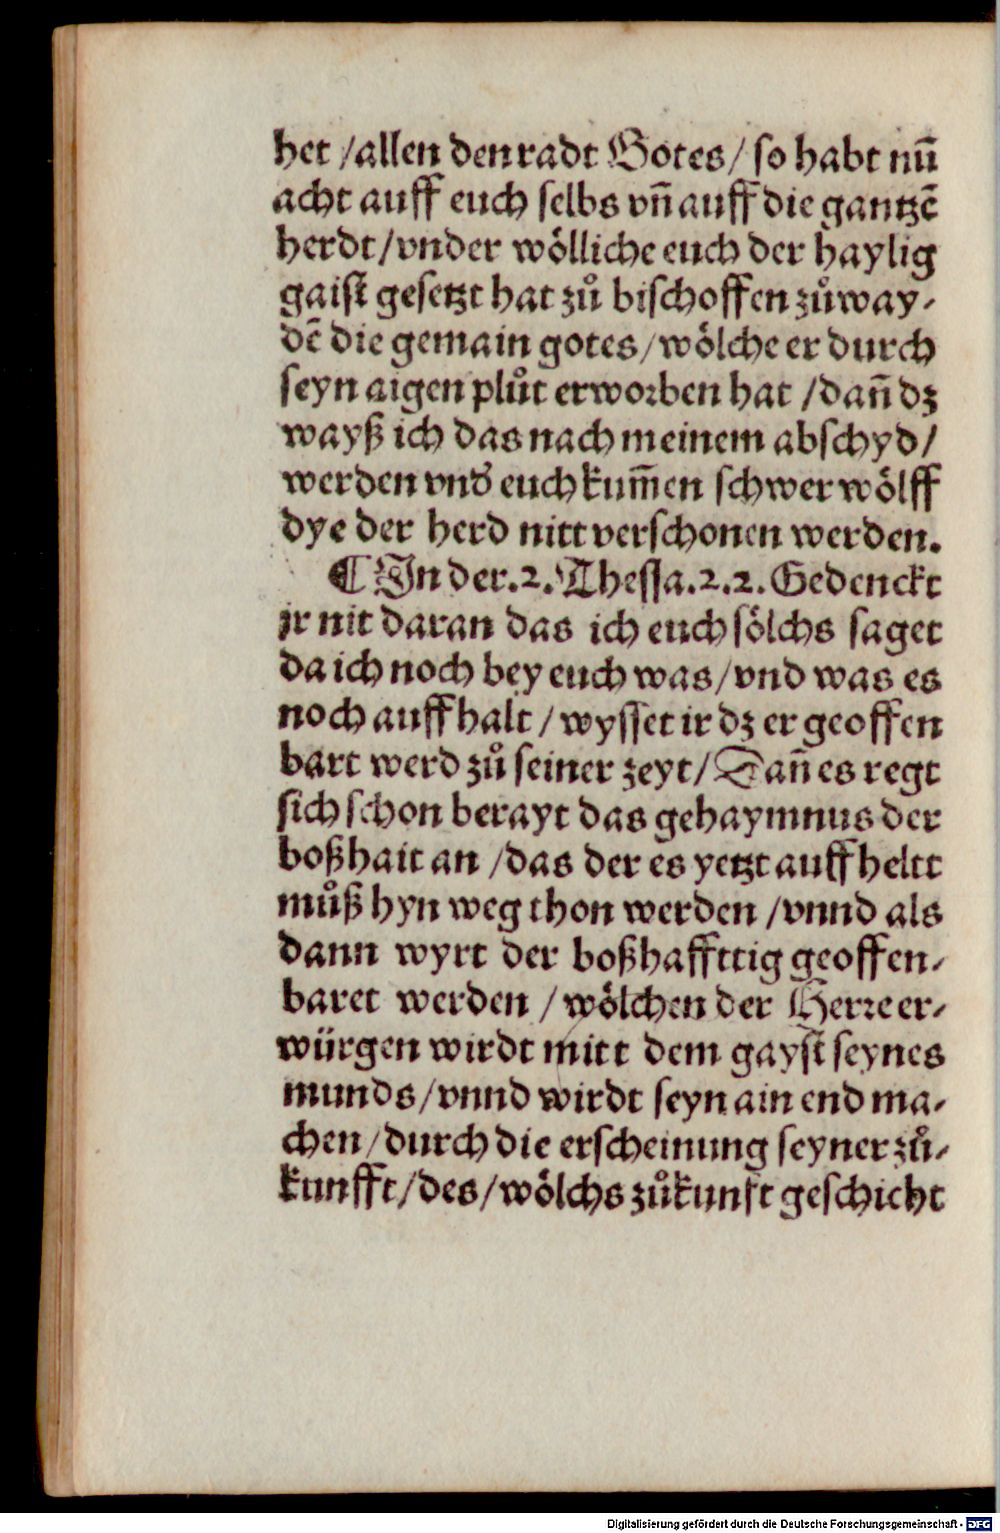 het /allen den radt Gotes/ so habt nū
acht auff euch selbs vñ auff die gantzē
herdt/vnder wölliche euch der haylig
gaist gesetzt hat zů bischoffen zůway-
dē die gemain gotes/wölche er durch
seyn aigen plůt erworben hat /dañ dz
wayß ich das nach meinem abschyd/
werden vnd' euch kum̄en schwer wölff
dye der herd nitt verschonen werden.
¶ In der.2.Thessa.2.2.Gedenckt
jr nit daran das ich euch sölchs saget
da ich noch bey euch was/vnd was es
noch auffhalt / wysset ir dz er geoffen
bart werd zů seiner zeyt/Dañ es regt
sich schon berayt das gehaymnus der
boßhait an /das der es yetzt auffheltt
můß hyn weg thon werden /vnnd als
dann wyrt der boßhaffttig geoffen-
baret werden / wölchen der Herre er-
würgen wirdt mitt dem gayst seynes
munds/vnnd wirdt seyn ain end ma-
chen/durch die erscheinung seyner zů-
kunfft/des/wölchs zůkunft geschicht
Digitalisierung gefördert durch die Deutsche Forschungsgemeinschaft - DFG